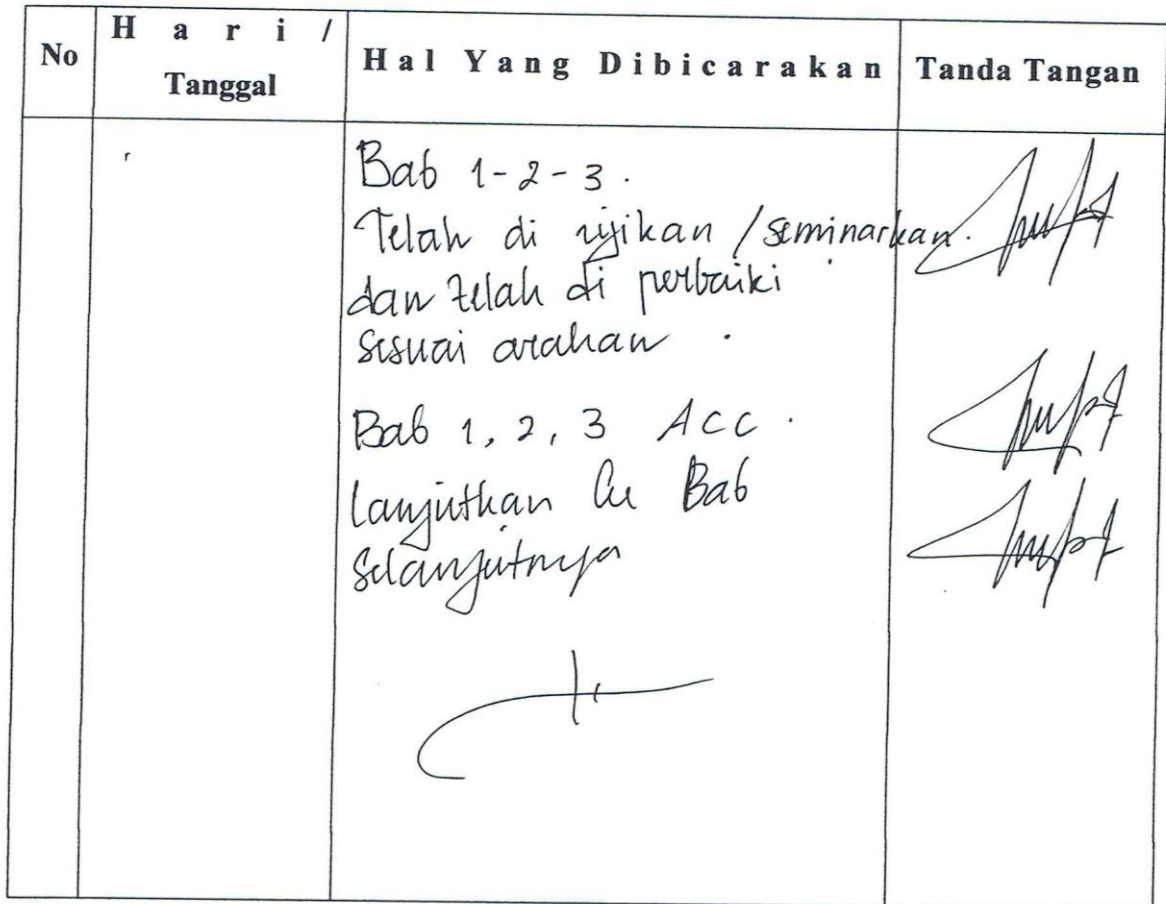 No
Hari/
Tanggal
Hal Yang Dibicarakan
Tanda Tangan
Bab 1-2-3.
Telah di ujikan / seminarkan.
dan telah di perbaiki
sesuai arahan.
Bab 1, 2, 3 Acc.
lanjutkan ke Bab
selanjutnya